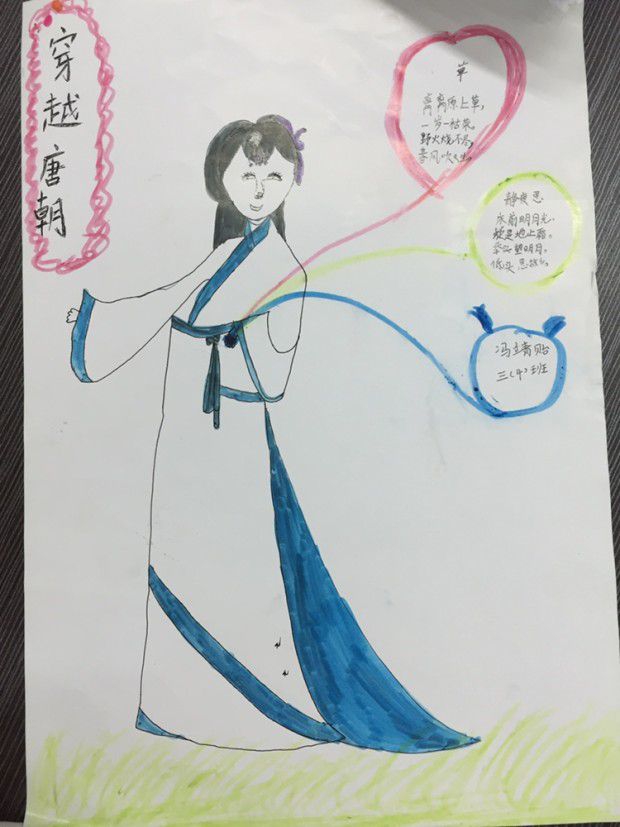 穿越唐朝
草
离离原上草,
一岁一枯荣。
野火烧不尽,
春风吹又生。
静夜思
床前明月光,
疑是地上霜。
举头望明月,
低头思故乡。
冯靖贻
三(4)班